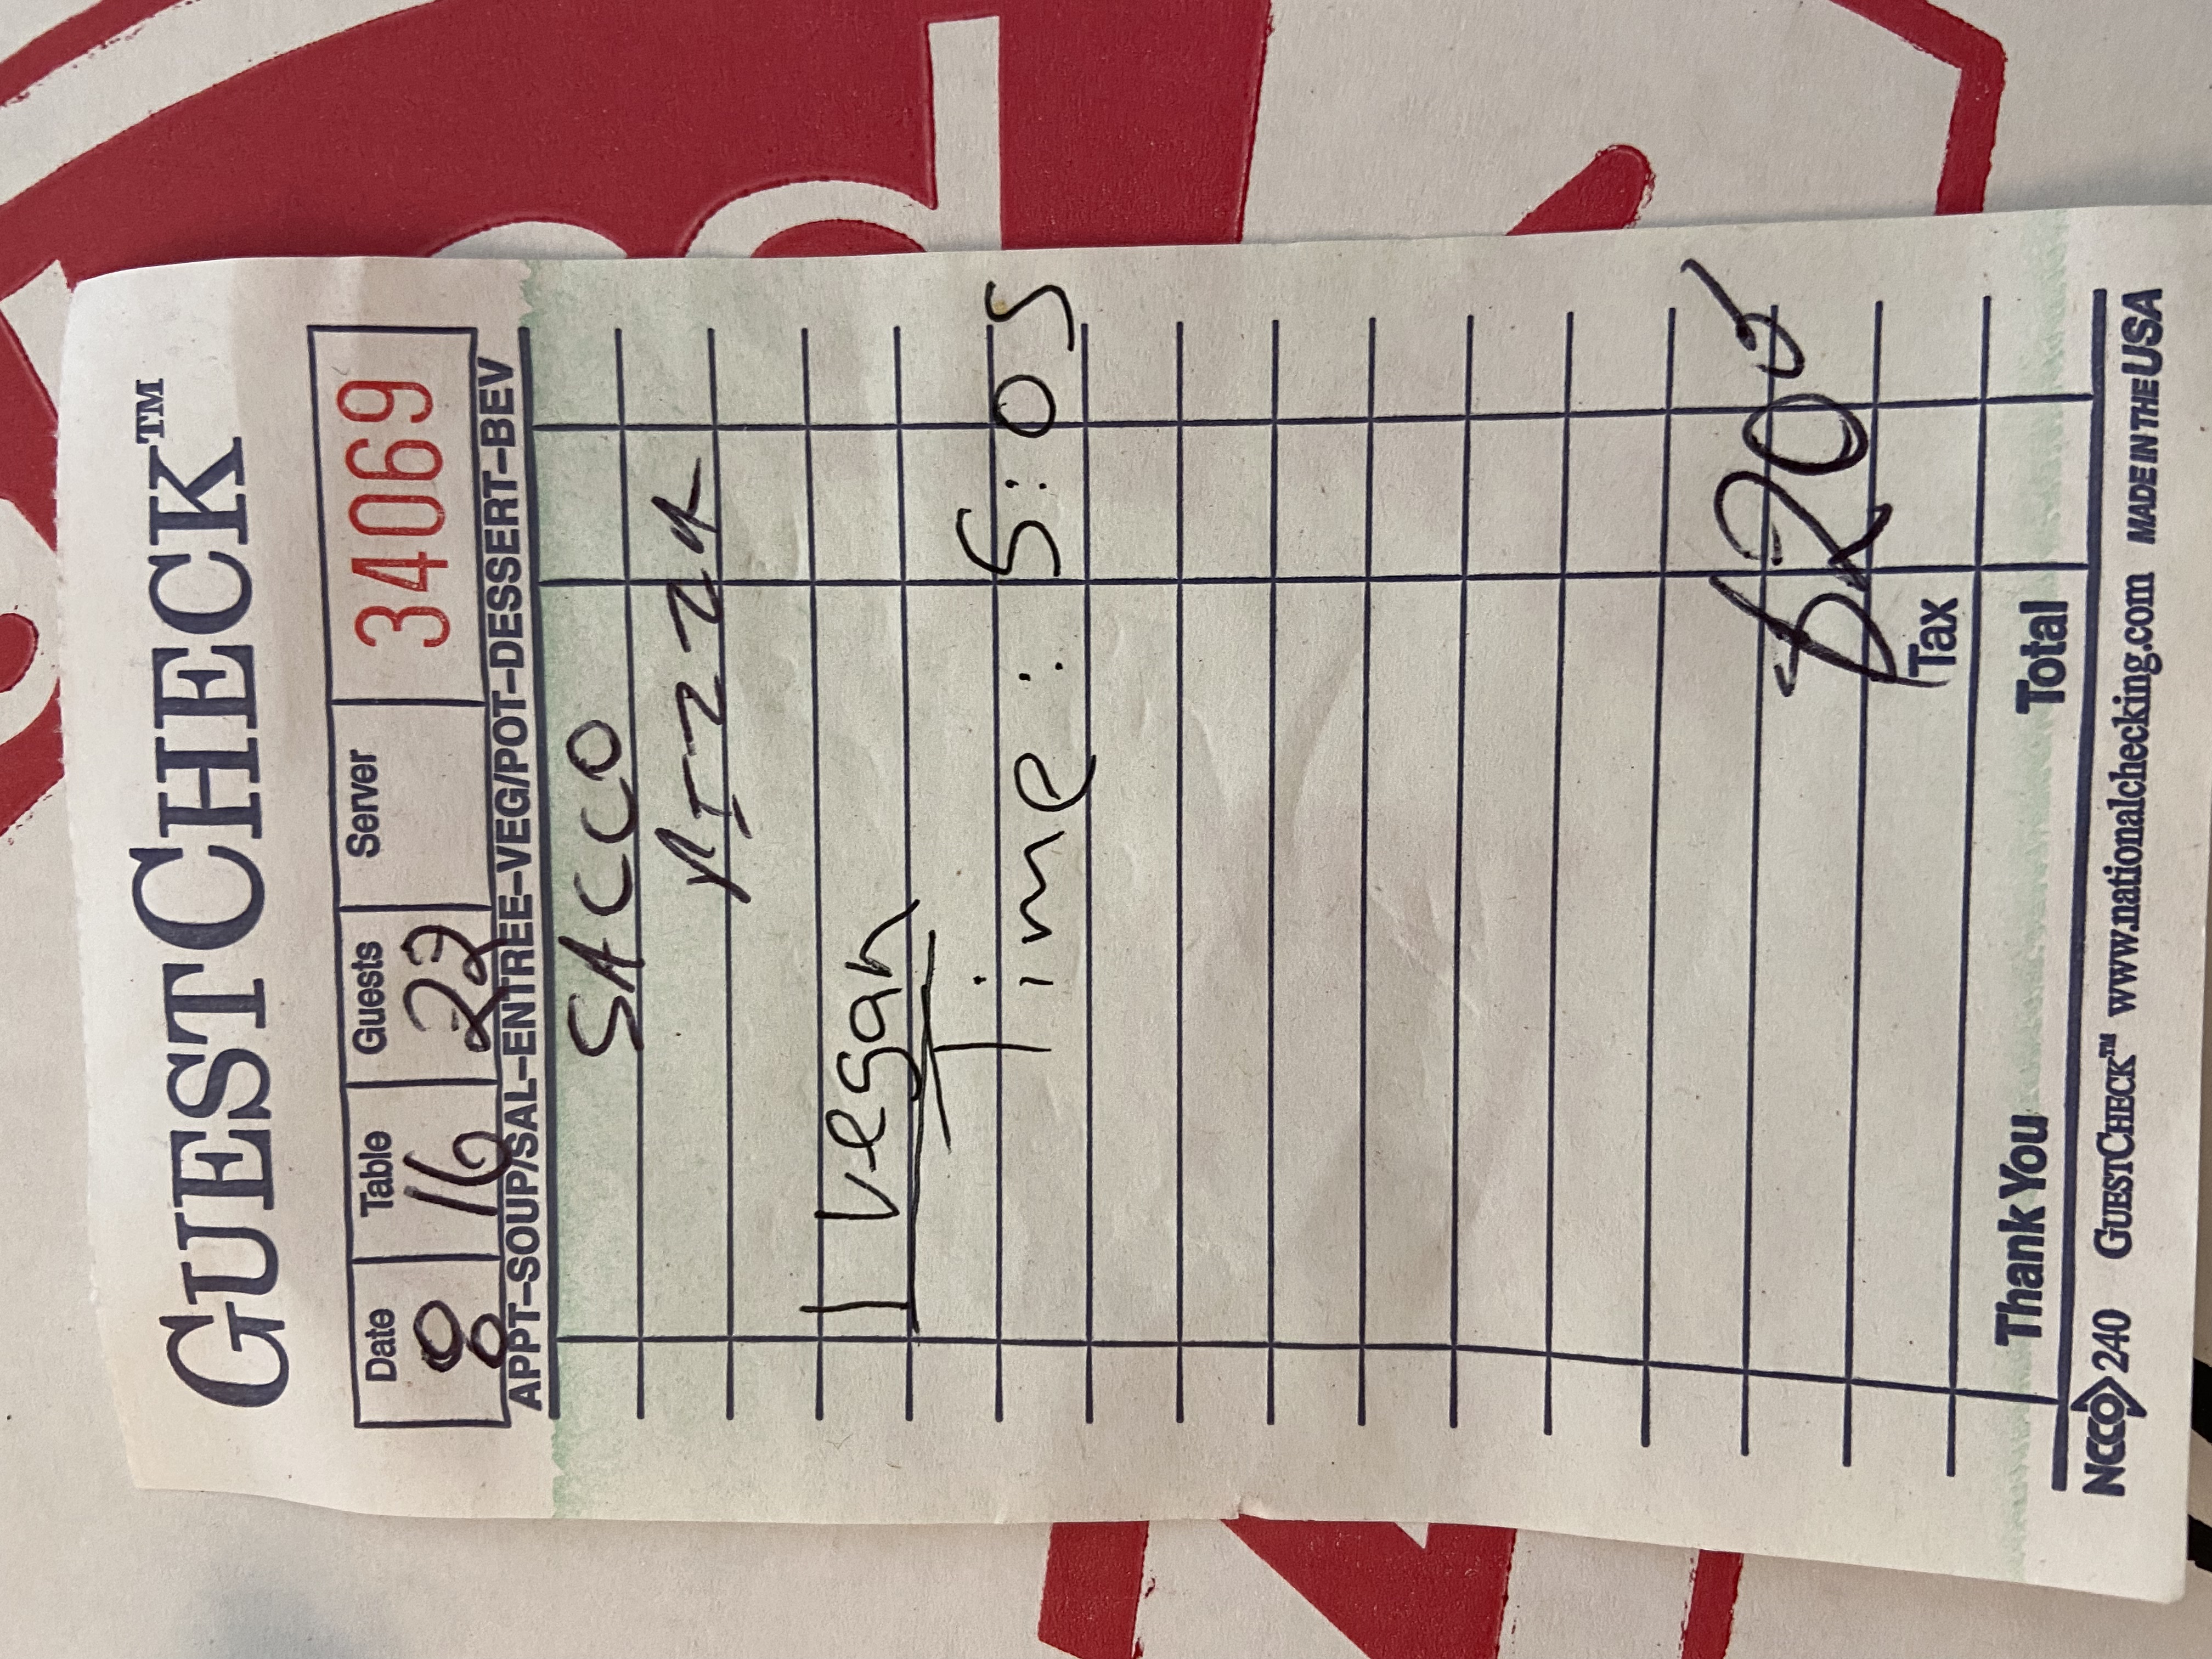 GUESTCHECK™
Date Table Guests Server 34069
8 16 22
APPT–SOUP/SAL–ENTREE–VEG/POT–DESSERT–BEV
SACCO
PIZZA
1 Vegan
Time: 5:05
$20
Tax
Thank You Total
NCCO 240 GUESTCHECK™ www.nationalchecking.com MADE IN THE USA